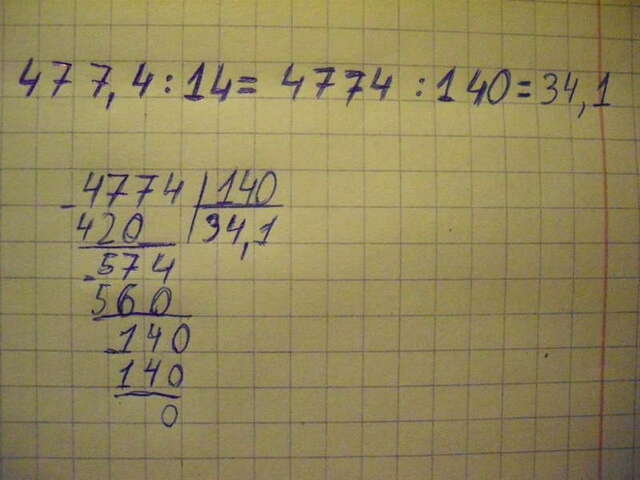 477,4 : 14 = 4774 : 140 = 34,1
- 4774 | 140
420 34,1
- 574
560
- 140
140
0